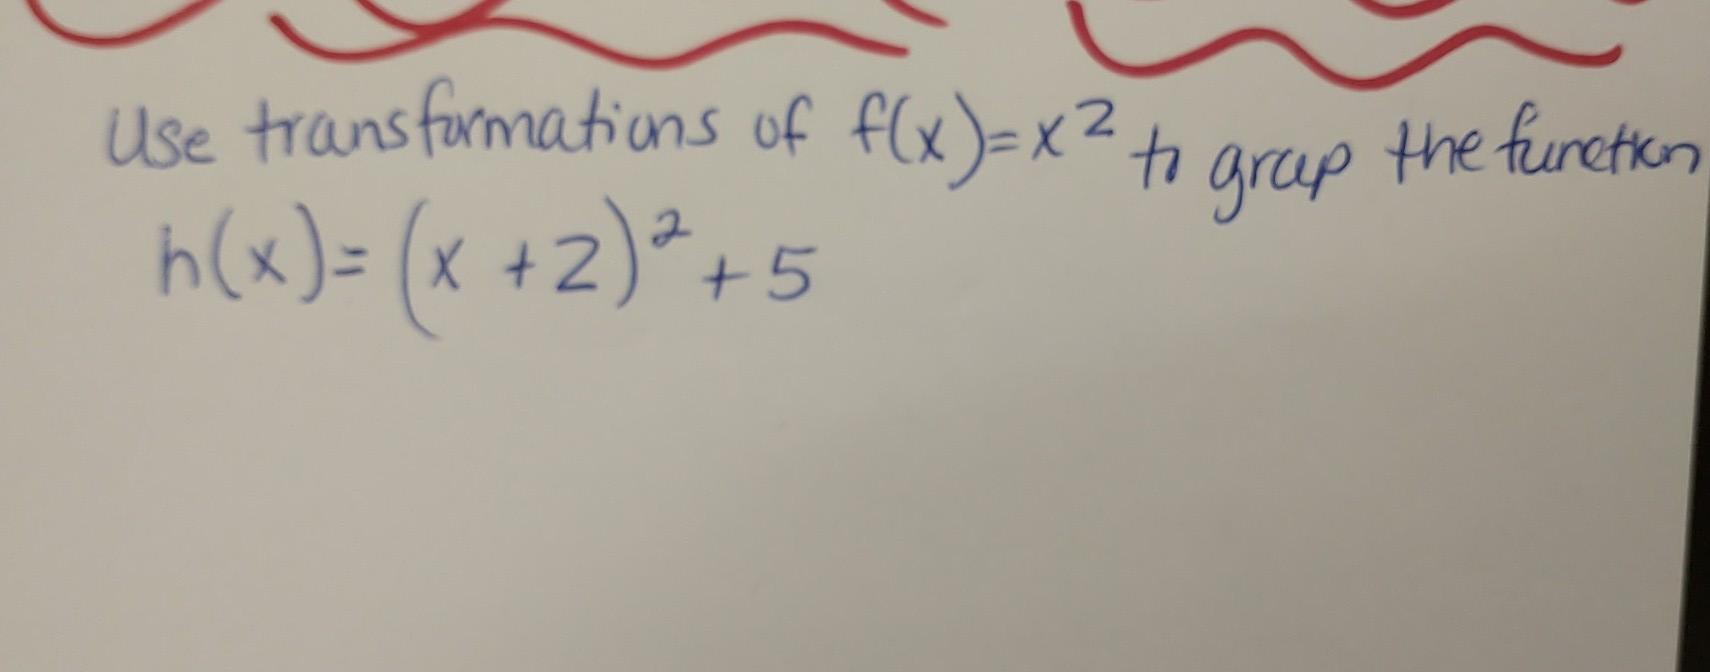 Use transformations of f(x)=x² to grap the function
h(x)=(x+2)²+5